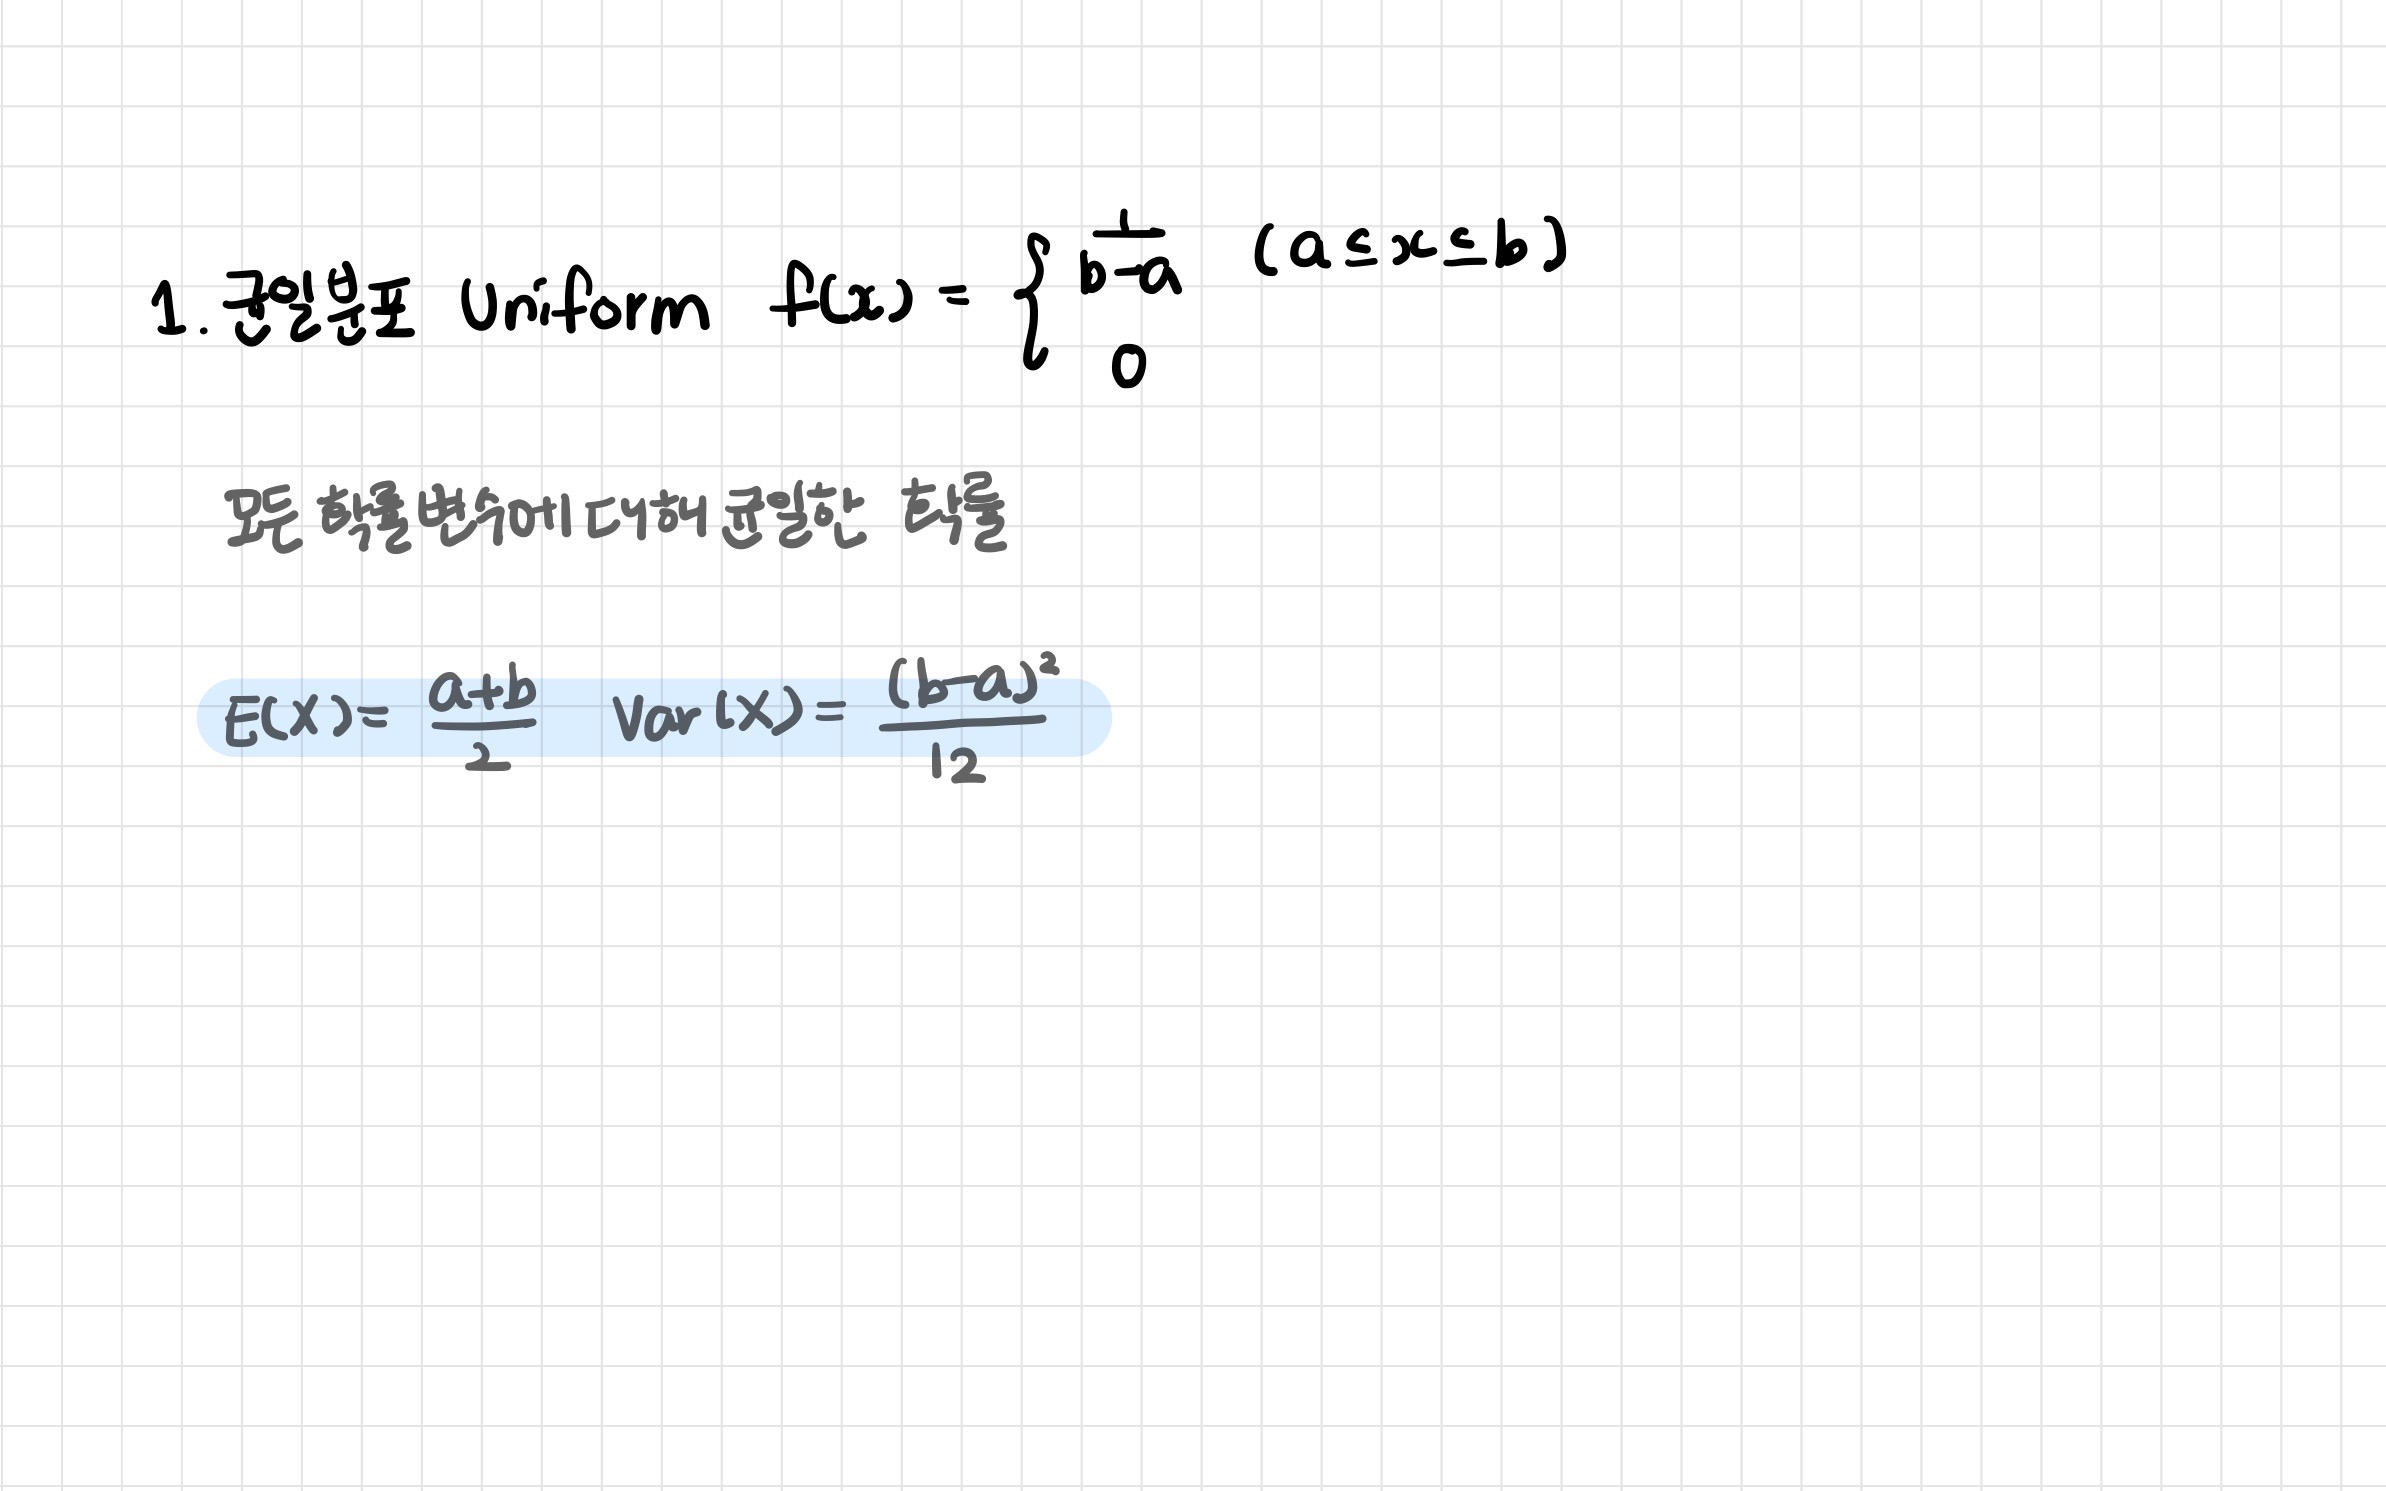 1. 균일분포 Uniform f(x) = { 1/(b-a) (a ≤ x ≤ b)
0
모든 확률변수에 대해 균일한 확률
E(X) = (a+b)/2 Var(X) = (b-a)²/12